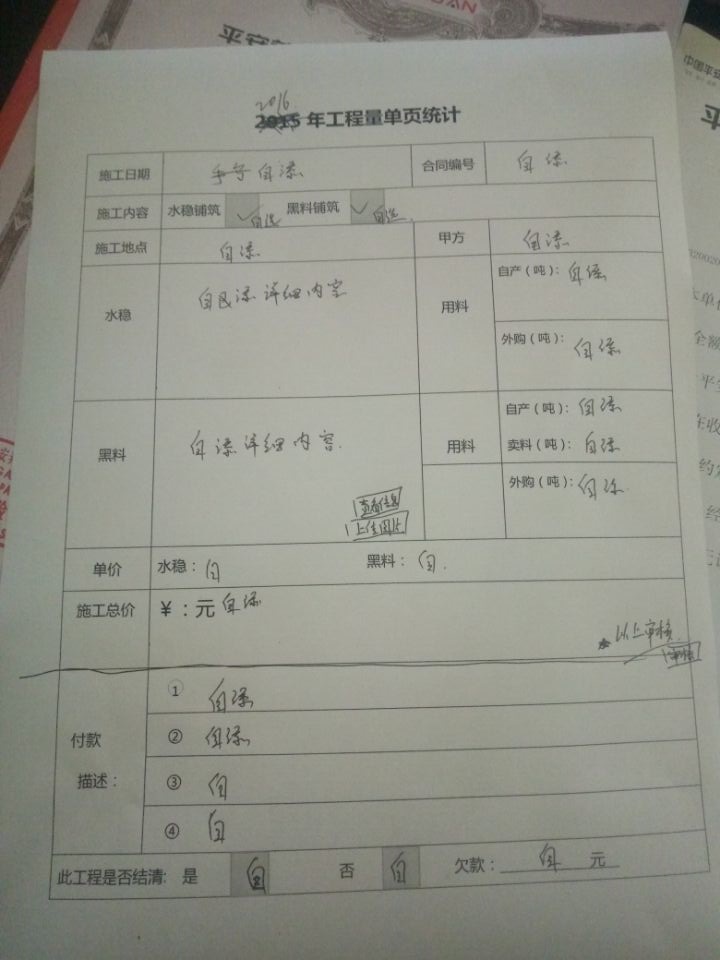 2016
2015年工程量单页统计
施工日期 自添 合同编号 自添
施工内容 水稳铺筑 ✓自选 黑料铺筑 ✓自选
施工地点 自添 甲方 自添
水稳 详细内容 用料 自产(吨): 自添
外购(吨): 自添
黑料 自添详细内容. 用料 自产(吨): 自添
卖料(吨): 自添
外购(吨): 自添
查看信息
上传图片
单价 水稳: 自 黑料: 自.
施工总价 ¥:元 自添
以上审核
审核
付款
描述:
① 自添
② 自添
③ 自
④ 自
此工程是否结清: 是 自 否 自 欠款: 自 元
中国平安
平